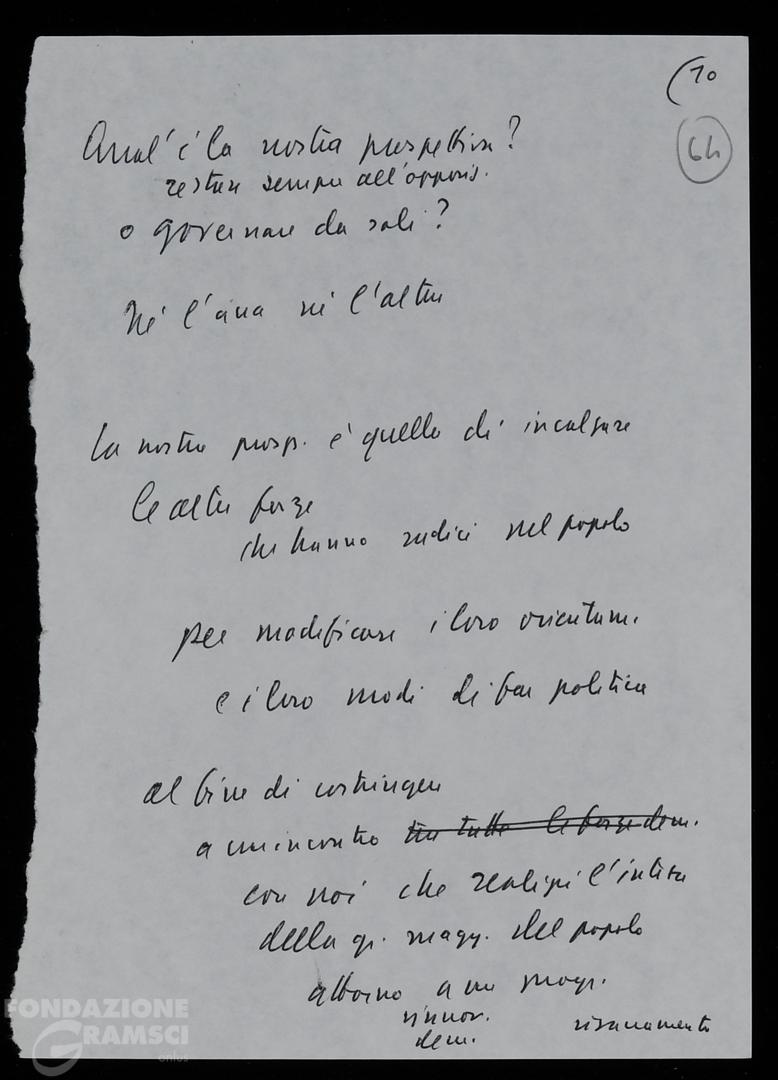 (10
64
Qual'è la nostra prospettiva?
restare sempre all'opposiz.
o governare da soli?
Né l'una né l'altra
La nostra prosp. è quella di incalzare
le altre forze
che hanno radici nel popolo
per modificare i loro orientam.
e i loro modi di far politica
al fine di costringere
a un incontro tra tutte le forze dem.
con noi che realizzi l'intesa
della gr. magg. del popolo
attorno a un progr.
rinnov. risanamento
dem.
FONDAZIONE
GRAMSCI
onlus